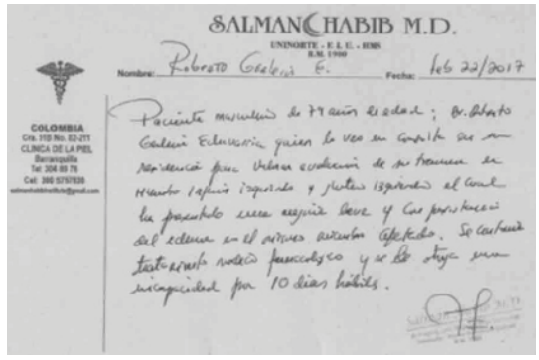 SALMAN HABIB M.D.
UNINORTE - E.L.U - HMS
R.M. 1980
Nombre: Roberto E.
Fecha: feb 22/2017
COLOMBIA
CLINICA DE LA PIEL
Barranquilla
Paciente masculino de 79 años de edad; Sr. Roberto
Echavarria quien lo veo en consulta en su
residencia para valorar evolucion de su trauma en
miembro izquierdo y izquierdo el cual
ha presentado una mejoria leve y con persistencia
del edema en el mismo miembro afectado. Se continua
tratamiento medico farmacologico y se le otorga una
incapacidad por 10 dias habiles.